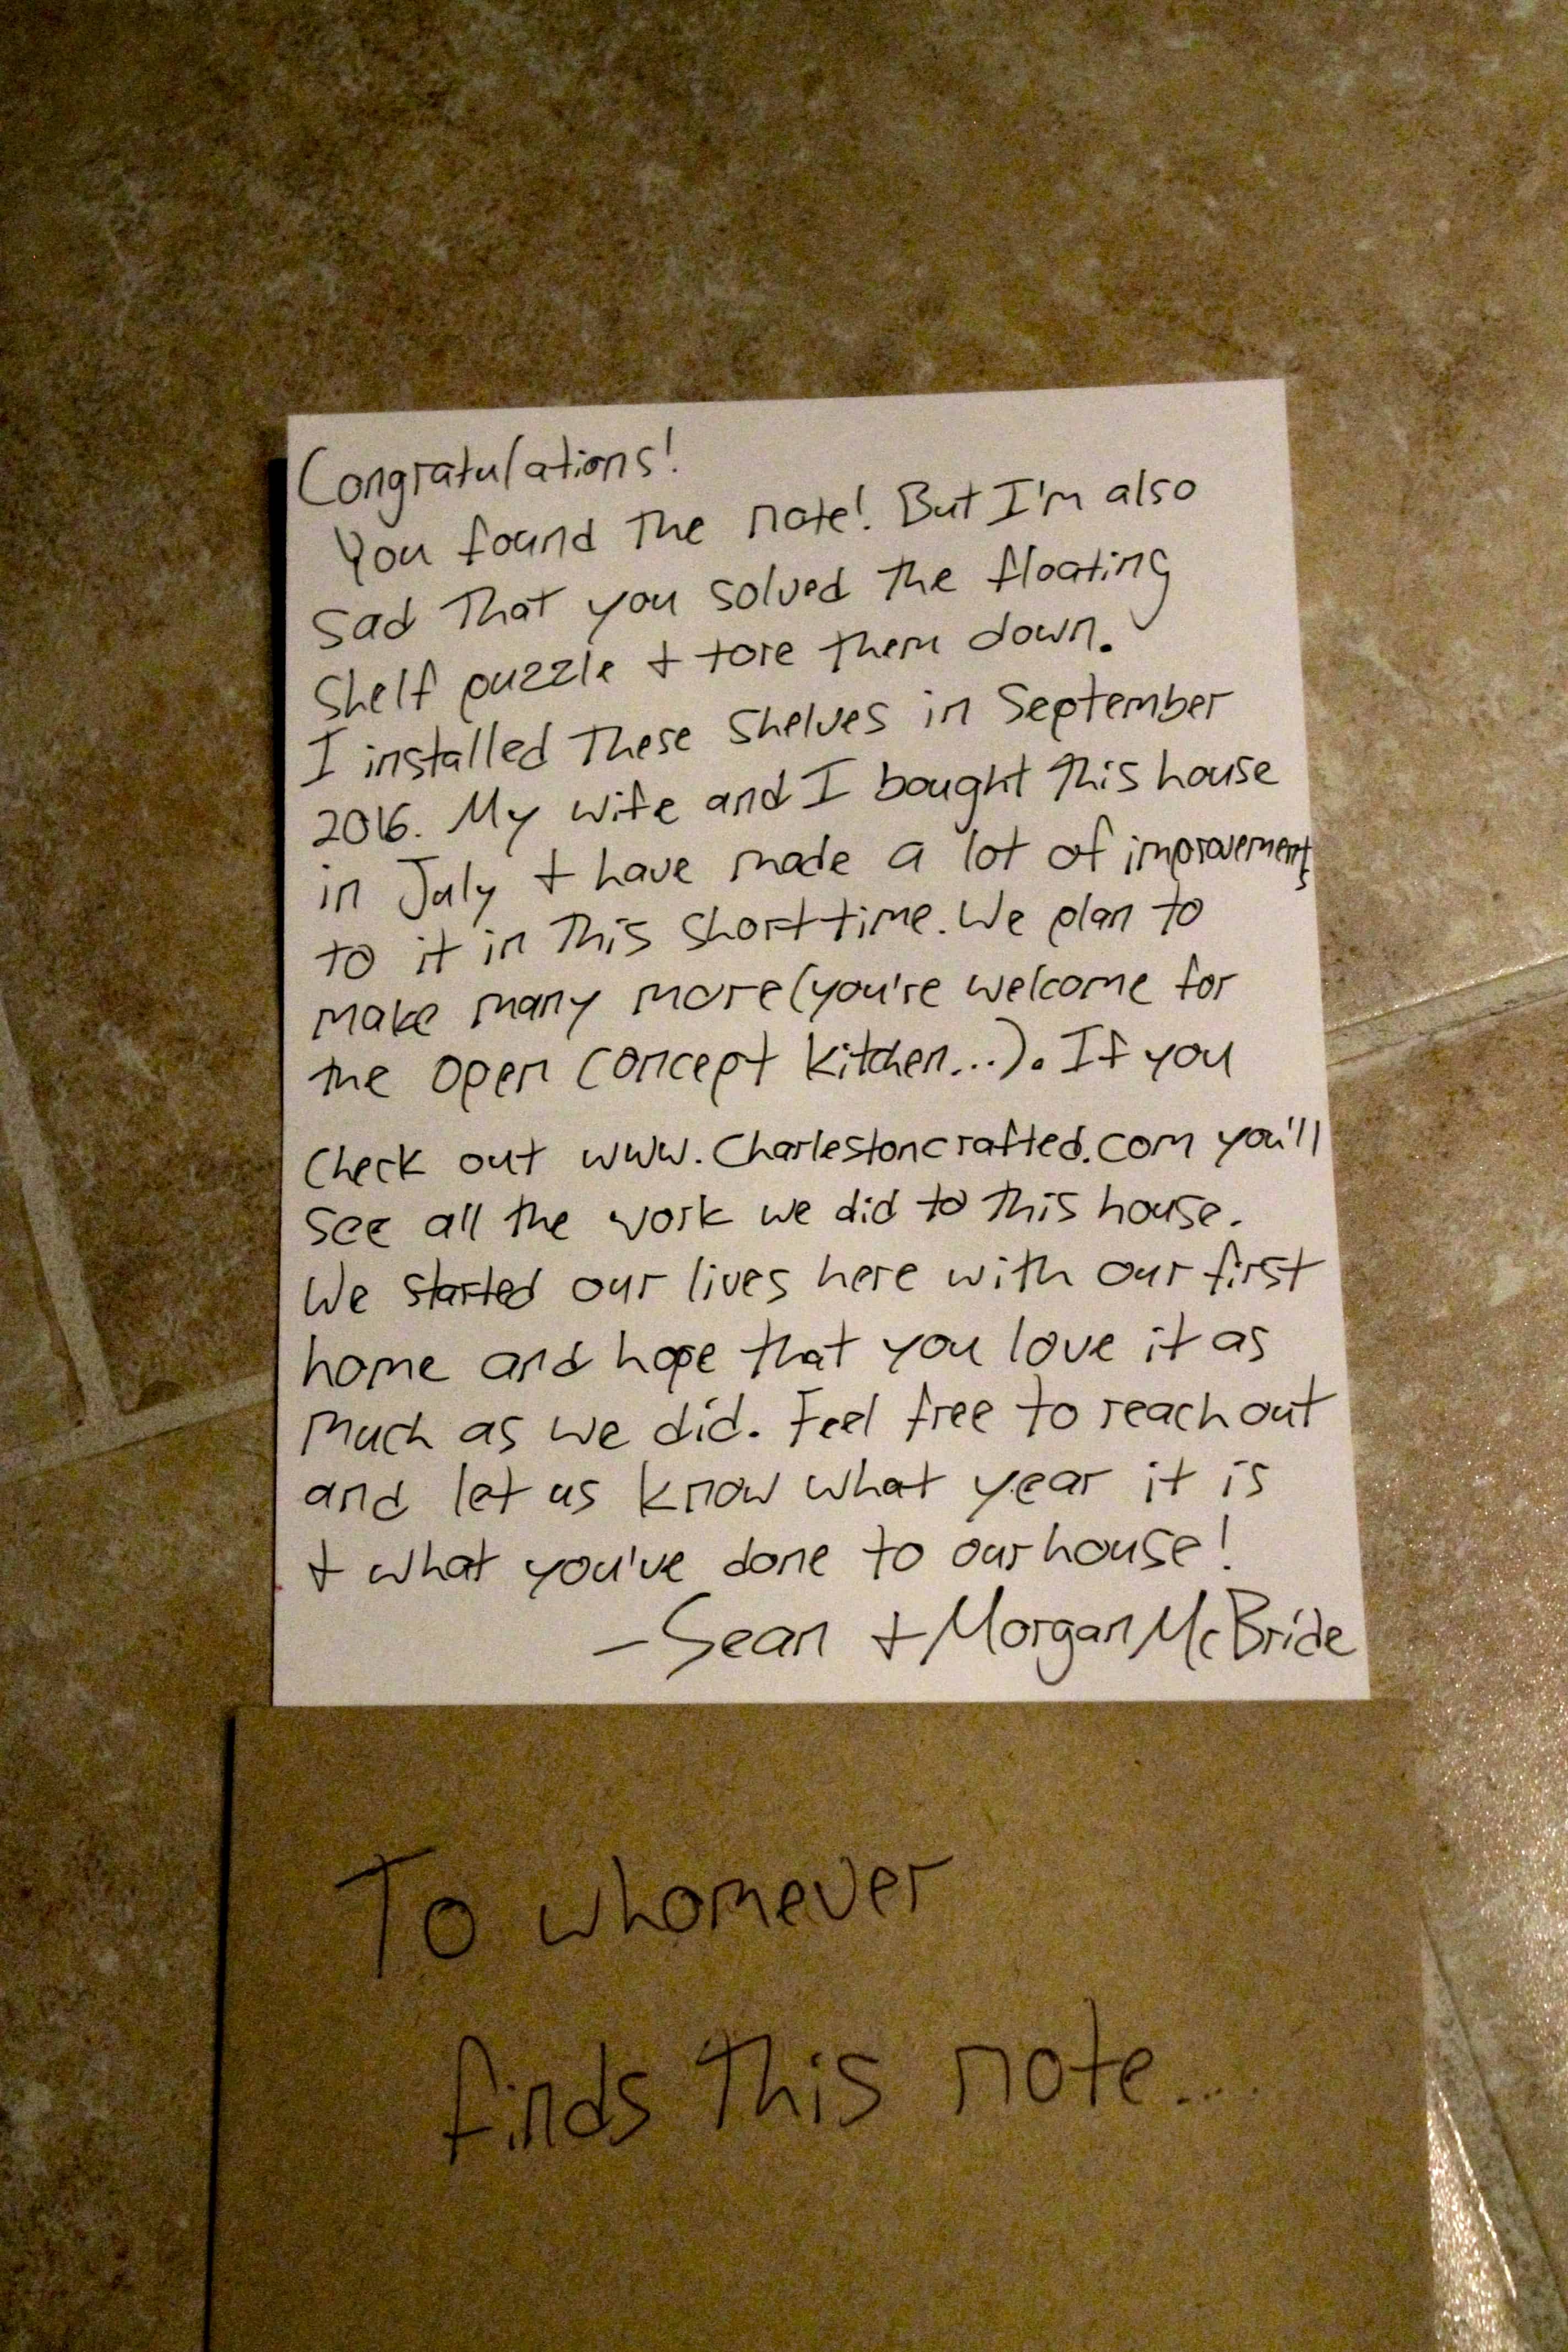 Congratulations!
You found the note! But I'm also
sad that you solved the floating
shelf puzzle + tore them down.
I installed these shelves in September
2016. My wife and I bought this house
in July + have made a lot of improvements
to it in this short time. We plan to
make many more (you're welcome for
the open concept kitchen...). If you
check out www.Charlestoncrafted.com you'll
see all the work we did to this house.
We started our lives here with our first
home and hope that you love it as
much as we did. Feel free to reach out
and let us know what year it is
+ what you've done to our house!
- Sean + Morgan McBride
To whomever
finds this note....